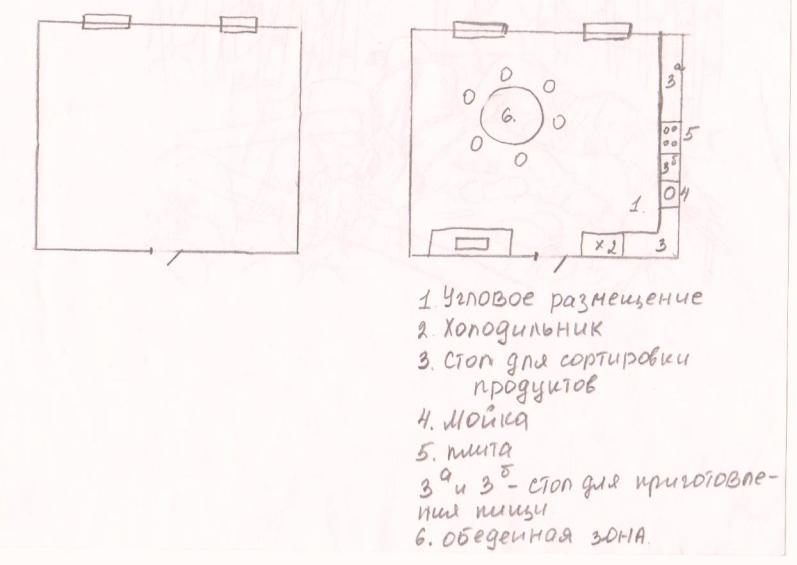 6.
3а
5
3б
4
1.
х2
3
1. Угловое размещение
2. Холодильник
3. Стол для сортировки
продуктов
4. Мойка
5. плита
3а и 3б - стол для приготовле-
ния пищи
6. обеденная зона.